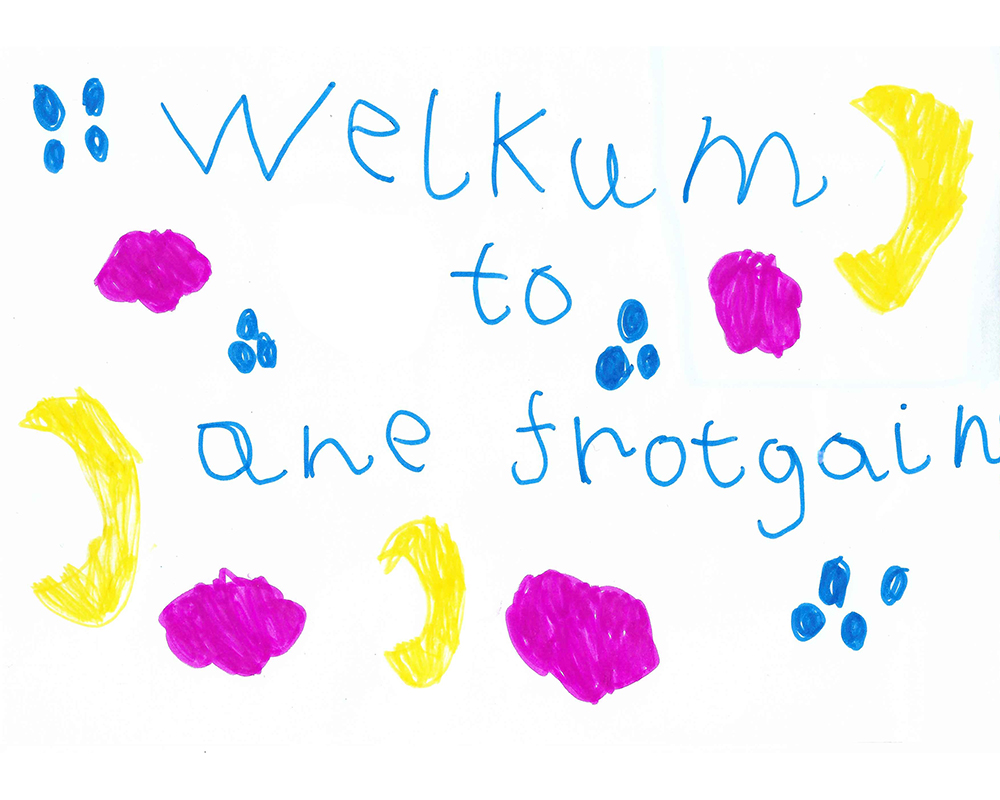 Welkum
to
ane frotgain